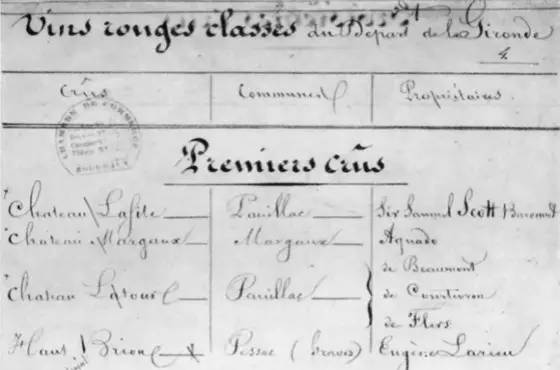 Vins rouges classés du Départ de la Gironde
4.
Crûs Communes Propriétaires.
CHAMBRE DE COMMERCE
BORDEAUX
Premiers Crûs
Chateau Lafite Pauillac Sir Samuel Scott Baronnet
Chateau Margaux Margaux Aguado
de Beaumont
Chateau Latour Pauillac de Courtivron
de Flers
Haut Brion Pessac (Graves) Eugène Larieu